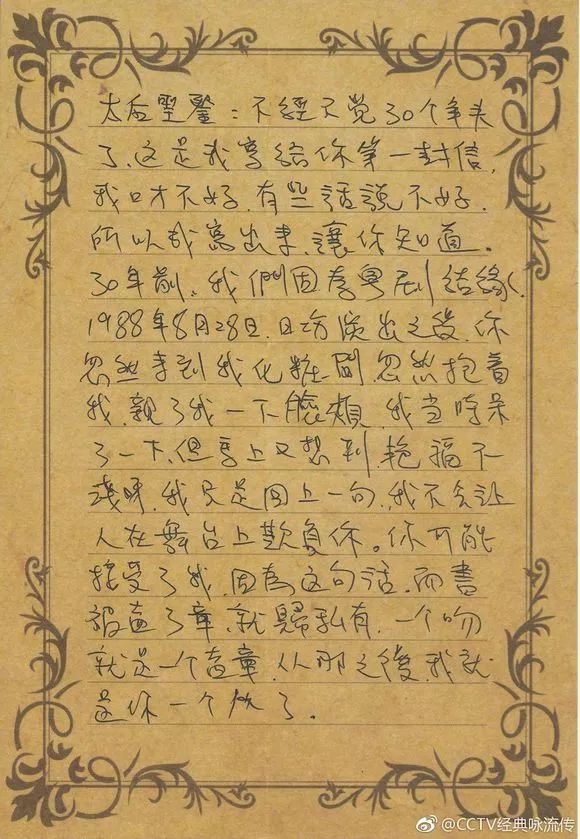 太后聖鑒：不經不覺30个年头
了，这是我寫給你第一封信，
我口才不好，有些话说不好，
所以我寫出来，讓你知道。
30年前，我們因為粤剧結緣，
1988年8月28日，日场演出之後，你
忽然来到我化粧間，忽然抱着
我，親了我一下臉頰，我当時呆
了一下，但馬上又想到，艳福不
浅呀，我只是回上一句，我不会让
人在舞台上欺負你。你可能
接受了我，因為这句话，而書
被盖了章，就歸私有，一个吻
就是一个盖章，从那之後，我就
是你一个人的了。
@CCTV经典咏流传